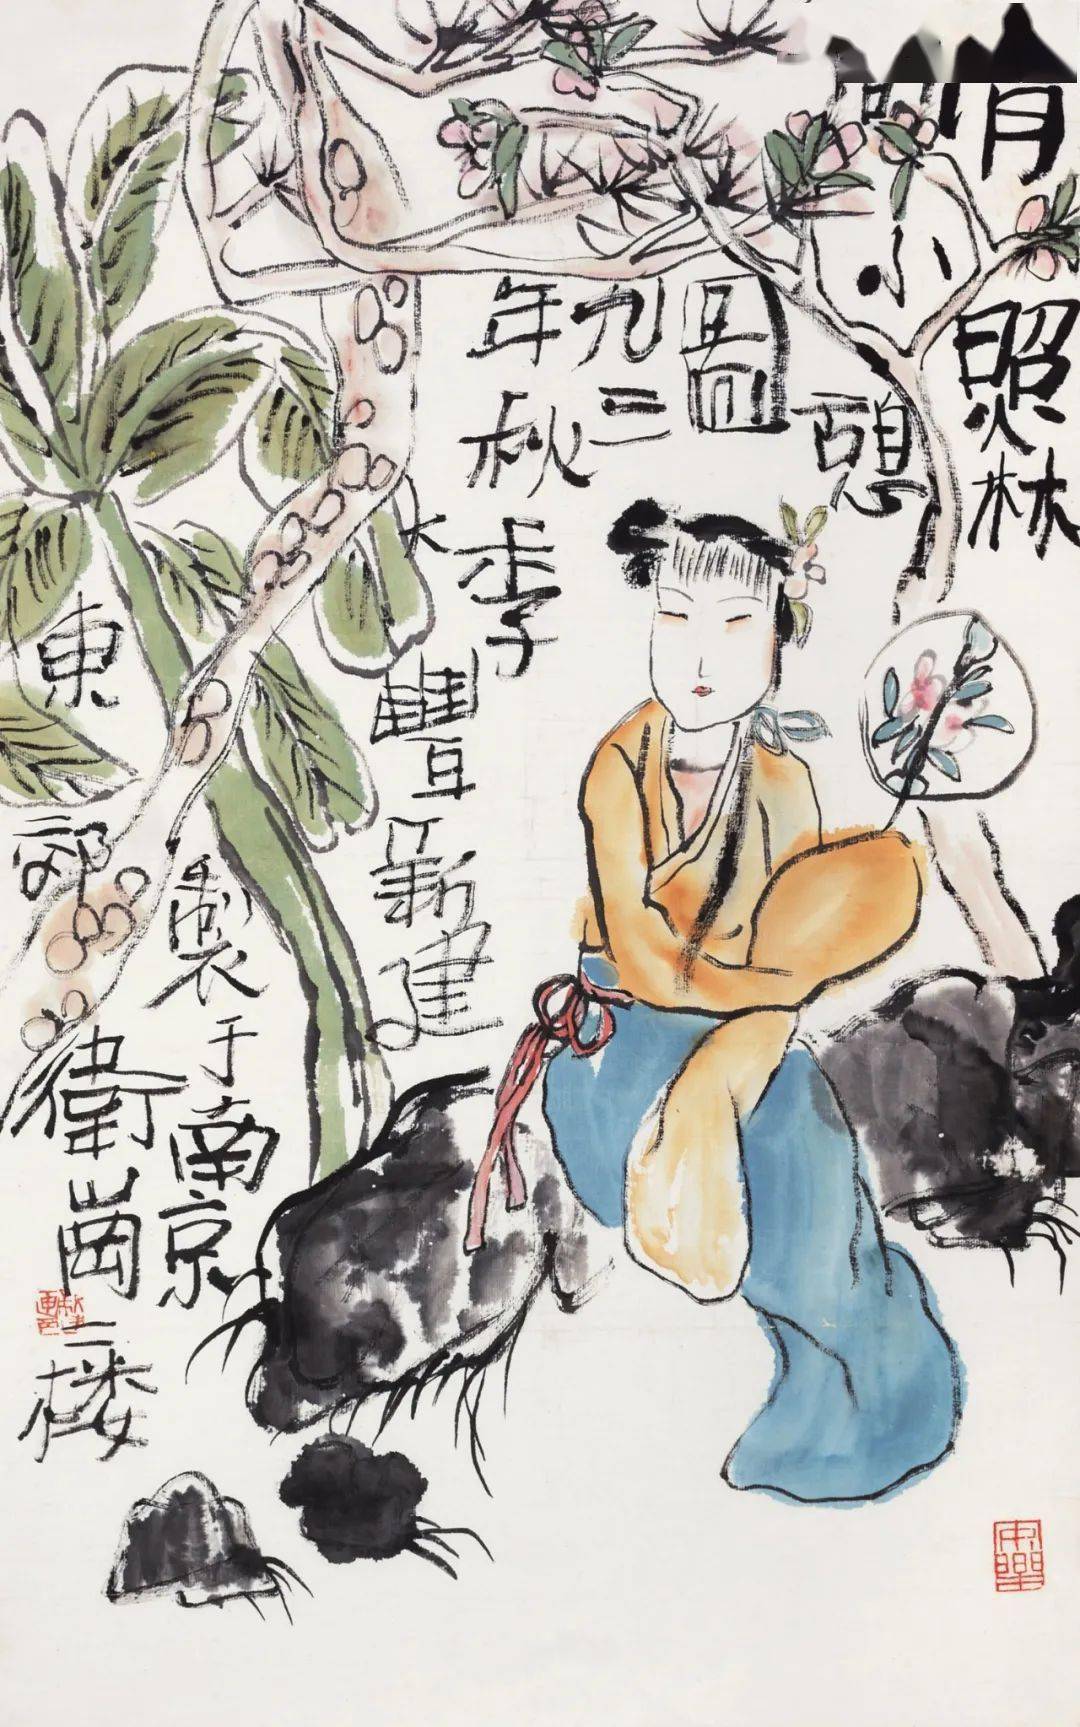 月照林
間小憩
圖
九三
年秋季
大豐新建
製于南京
東郊衛崗二楼